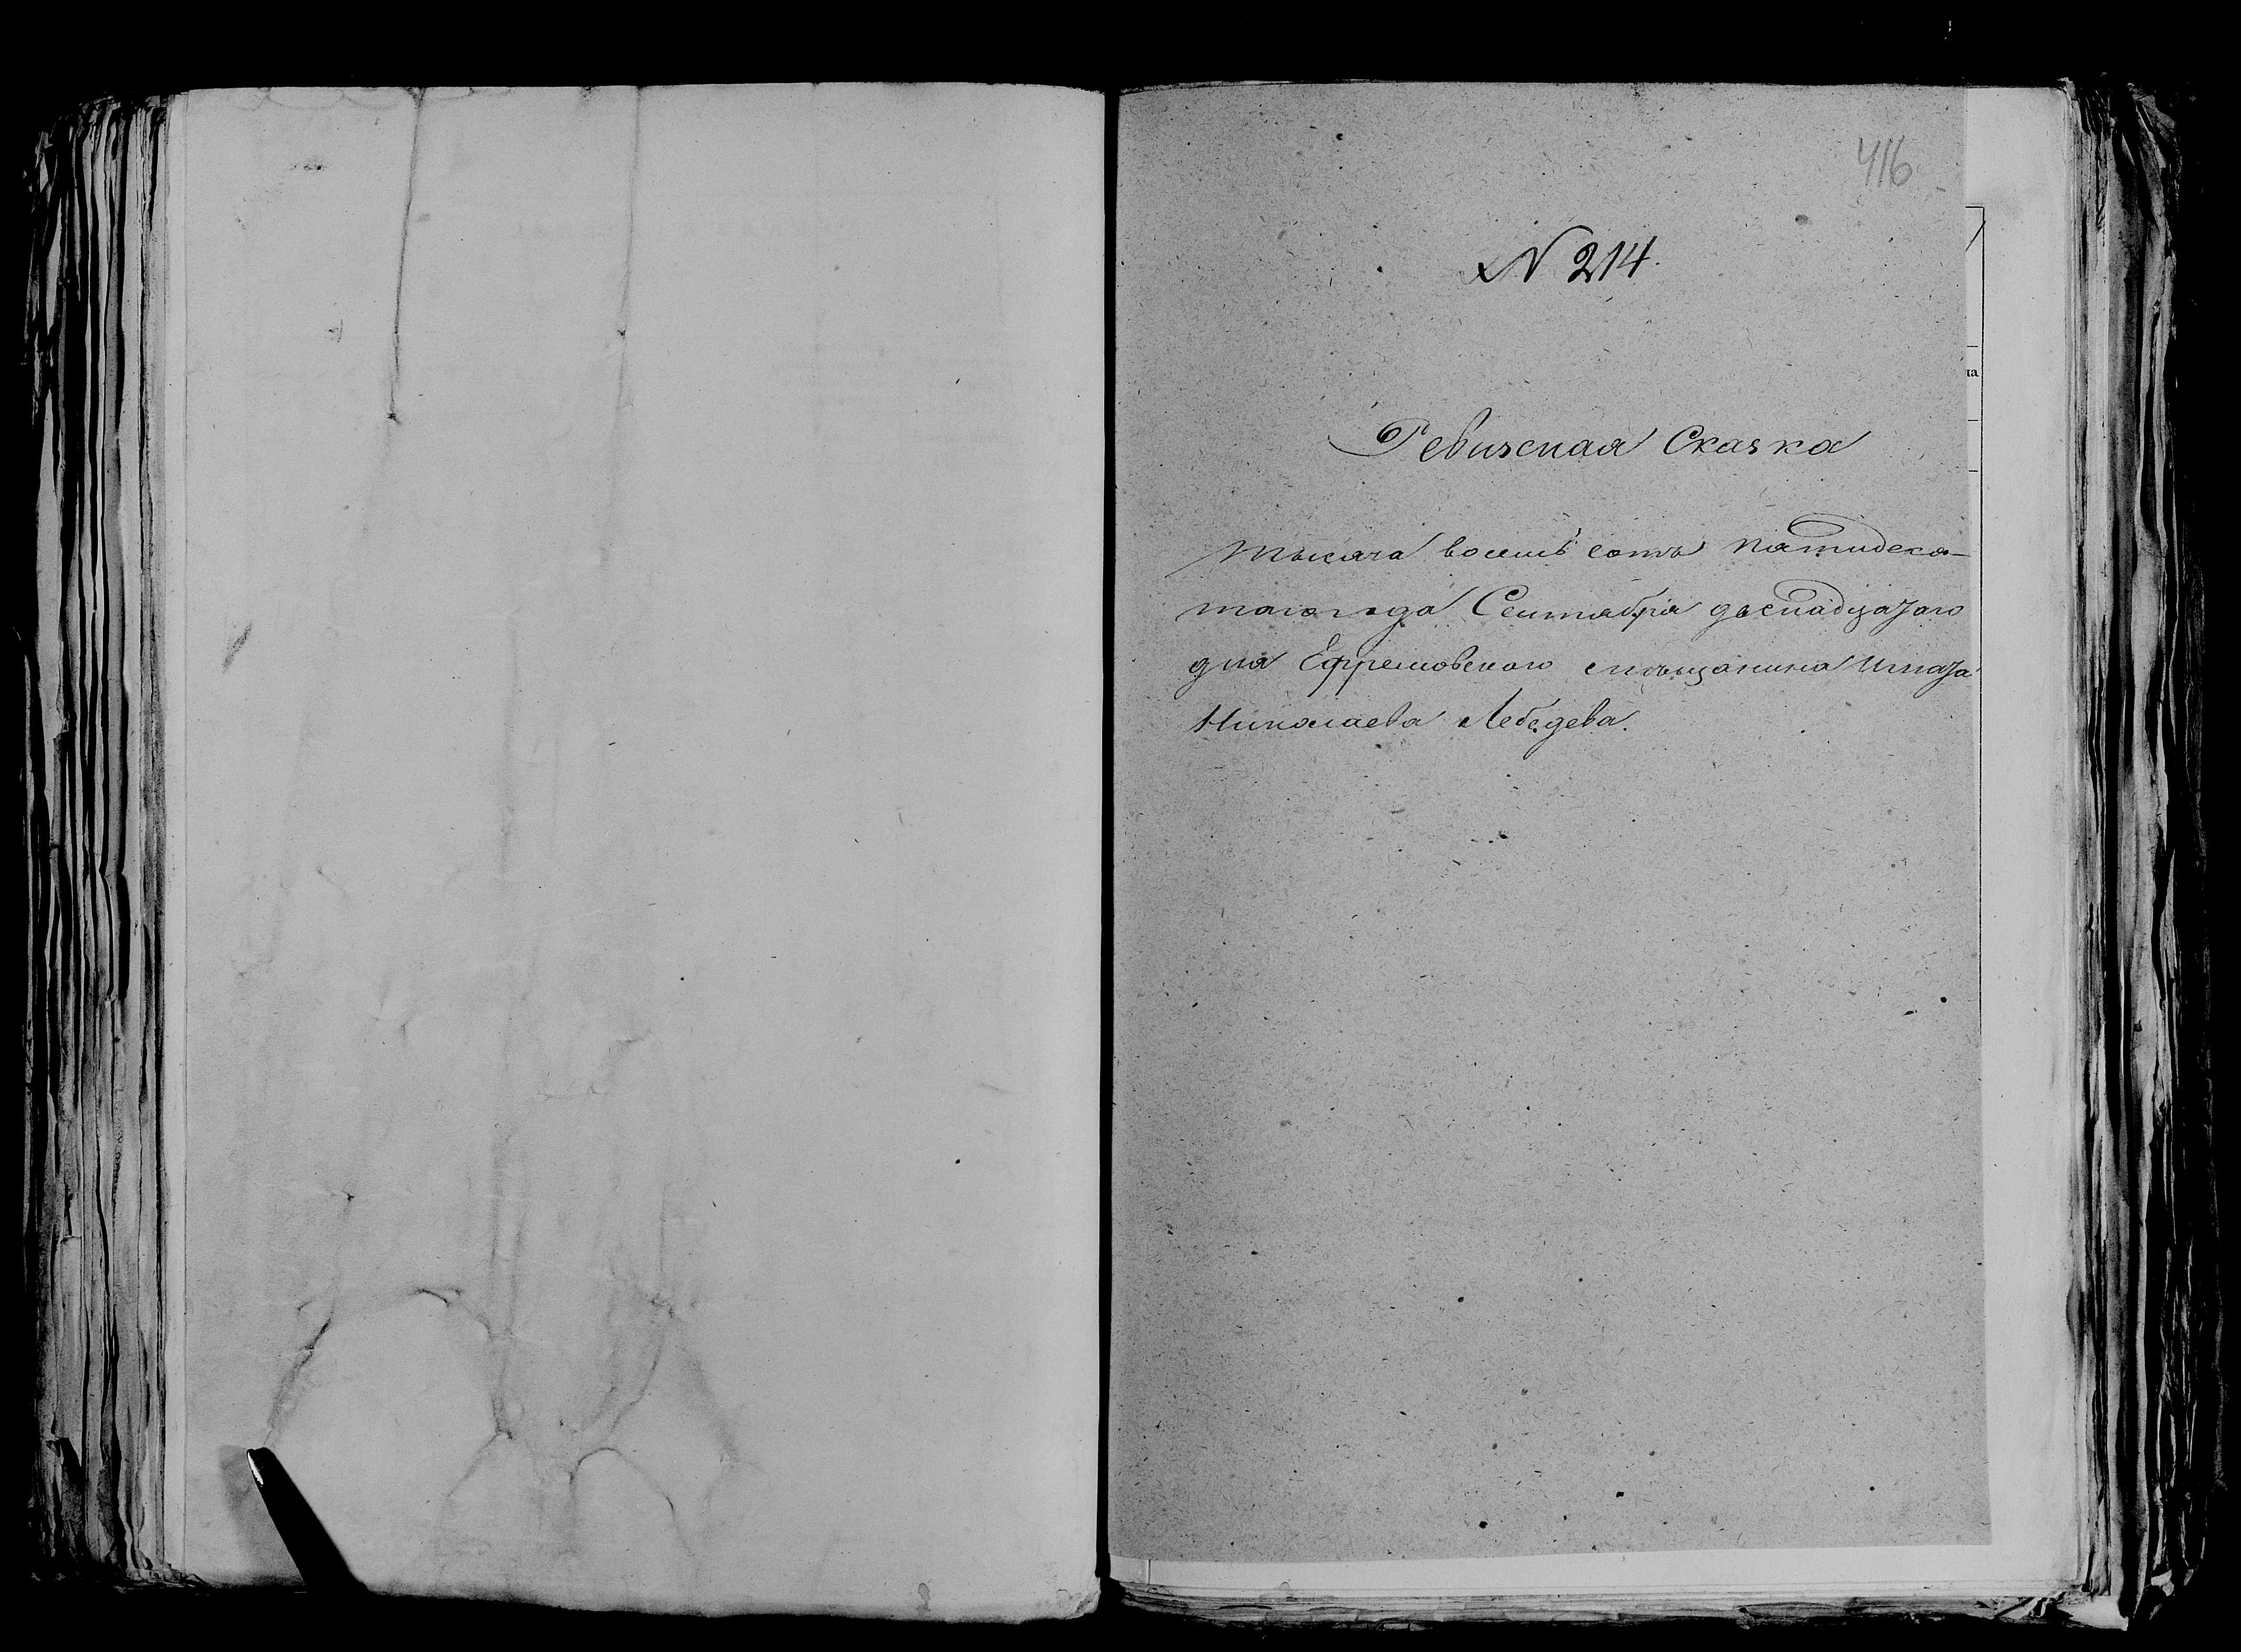 416
N 214.
Ревизская Сказка
тысяча восемь сотъ пятидеся-
таго года Сентября двенадцатаго
дня Ефремовского мѣщанина
Николаева Лебедева.